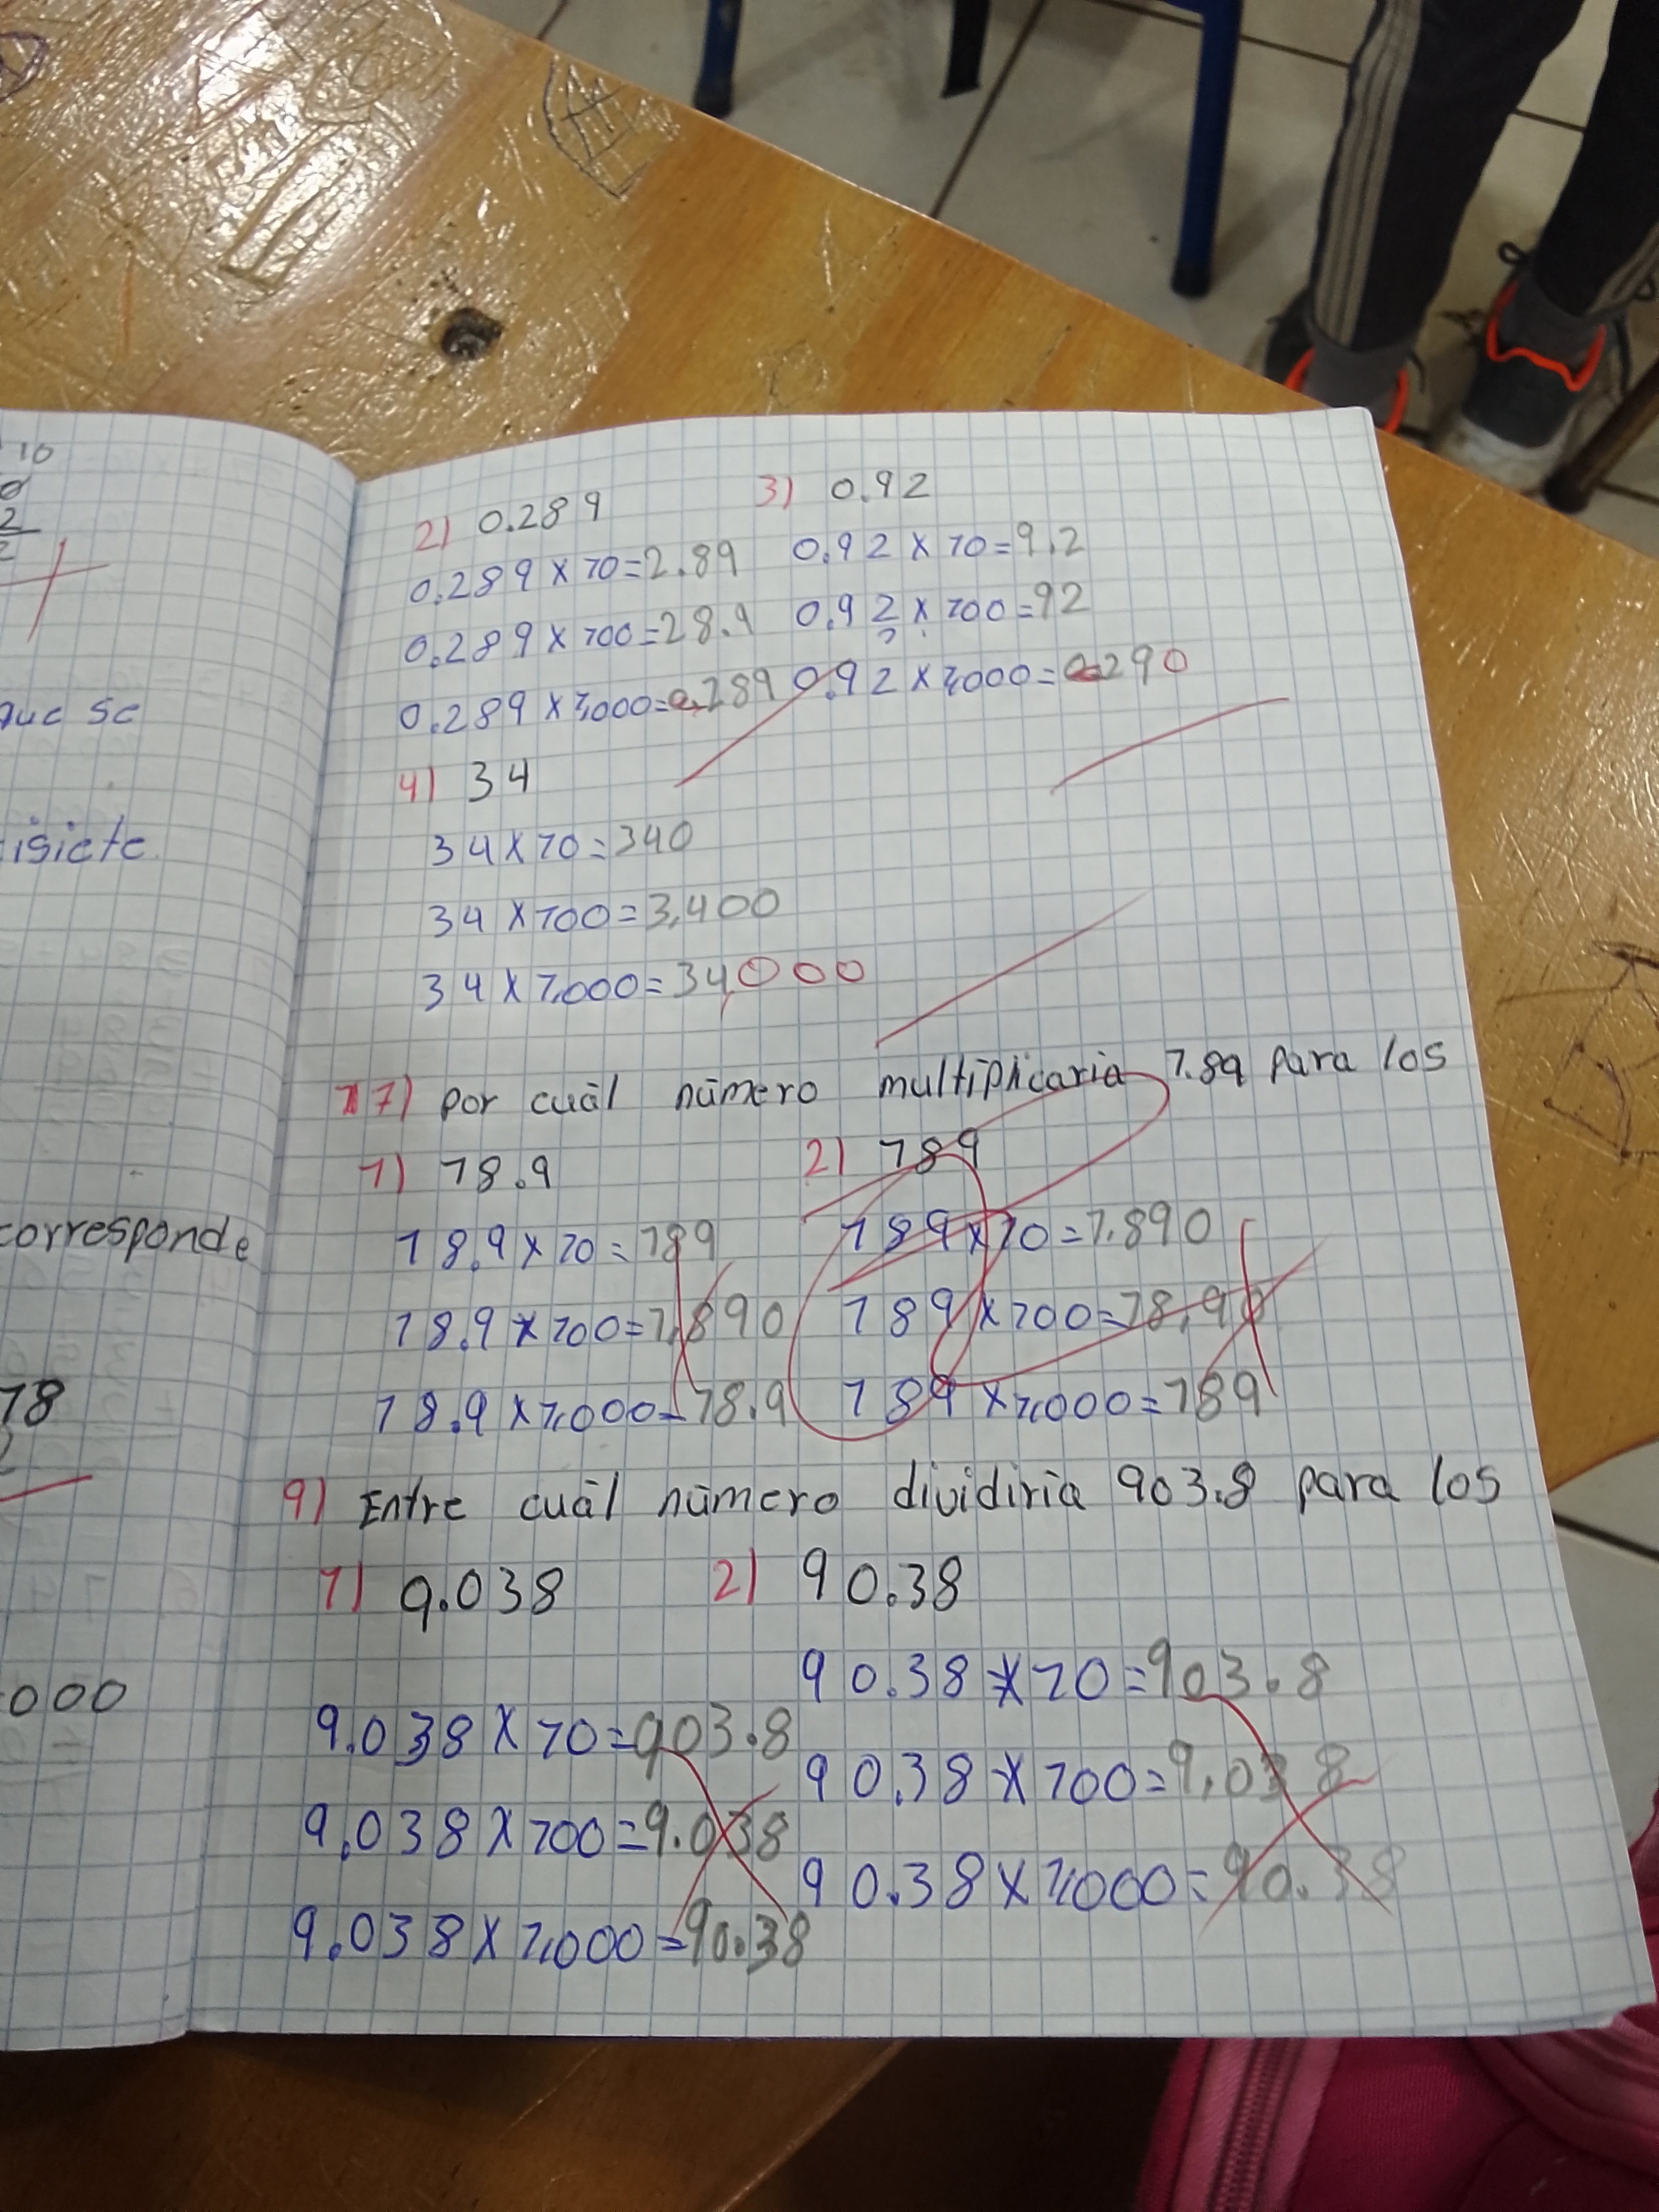 10
2
2
que se
isiete
corresponde
18
000
2) 0.289 3) 0.92
0.289 x 10 = 2.89 0.92 x 10 = 9.2
0.289 x 100 = 28.9 0.92 x 100 = 92
0.289 x 1,000 = 289 0.92 x 1,000 = 290
4) 34
34 x 10 = 340
34 x 100 = 3,400
34 x 1,000 = 34,000
11) Por cuál número multiplicaria 1.89 para los
1) 18.9 2) 189
18.9 x 10 = 189 189 x 10 = 1.890
18.9 x 100 = 1,890 189 x 100 = 18,90
18.9 x 1,000 = 18.9 189 x 1,000 = 189
9) Entre cuál número dividiria 903.8 para los
1) 9.038 2) 90.38
90.38 x 10 = 903.8
9.038 x 10 = 903.8
90.38 x 100 = 9,038
9.038 x 100 = 9.038
90.38 x 1,000 = 90.38
9.038 x 1,000 = 90.38